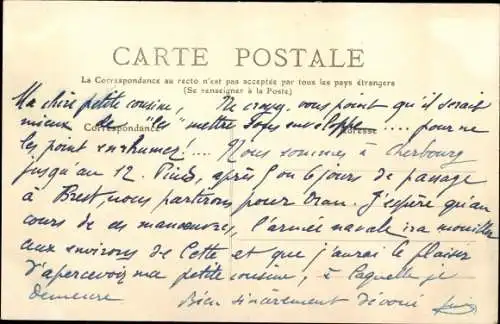 CARTE POSTALE
La Correspondance au recto n'est pas acceptée par tous les pays étrangers
(Se renseigner à la Poste)
Ma chère petite cousine, Ne croyez-vous point qu'il serait
mieux de "les" mettre sous enveloppe .... pour ne
Correspondance Adresse
les point enrhumer! .... Nous sommes à Cherbourg
jusqu'au 12. Puis, après 5 ou 6 jours de passage
à Brest, nous partirons pour Oran. J'espère qu'au
cours de ces manœuvres, l'armée navale ira mouiller
aux environs de Cette et que j'aurai le plaisir
d'apercevoir ma petite cousine, à laquelle je
demeure Bien sincèrement dévoué